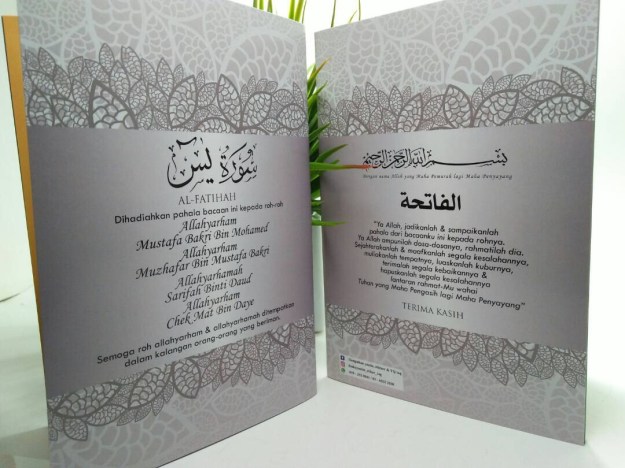 سورة يس
AL-FATIHAH
Dihadiahkan pahala bacaan ini kepada roh-roh
Allahyarham
Mustafa Bakri Bin Mohamed
Allahyarham
Muzhafar Bin Mustafa Bakri
Allahyarhamah
Sarifah Binti Daud
Allahyarham
Chek Mat Bin Daye
Semoga roh allahyarham & allahyarhamah ditempatkan
dalam kalangan orang-orang yang beriman.
بسم الله الرحمن الرحيم
Dengan nama Allah yang Maha Pemurah lagi Maha Penyayang
الفاتحة
"Ya Allah, jadikanlah & sampaikanlah
pahala dari bacaanku ini kepada rohnya.
Ya Allah ampunilah dosa-dosanya, rahmatilah dia.
Sejahterakanlah & maafkanlah segala kesalahannya,
muliakanlah tempatnya, luaskanlah kuburnya,
terimalah segala kebaikannya &
hapuskanlah segala kesalahannya
lantaran rahmat-Mu wahai
Tuhan yang Maha Pengasih lagi Maha Penyayang"
TERIMA KASIH